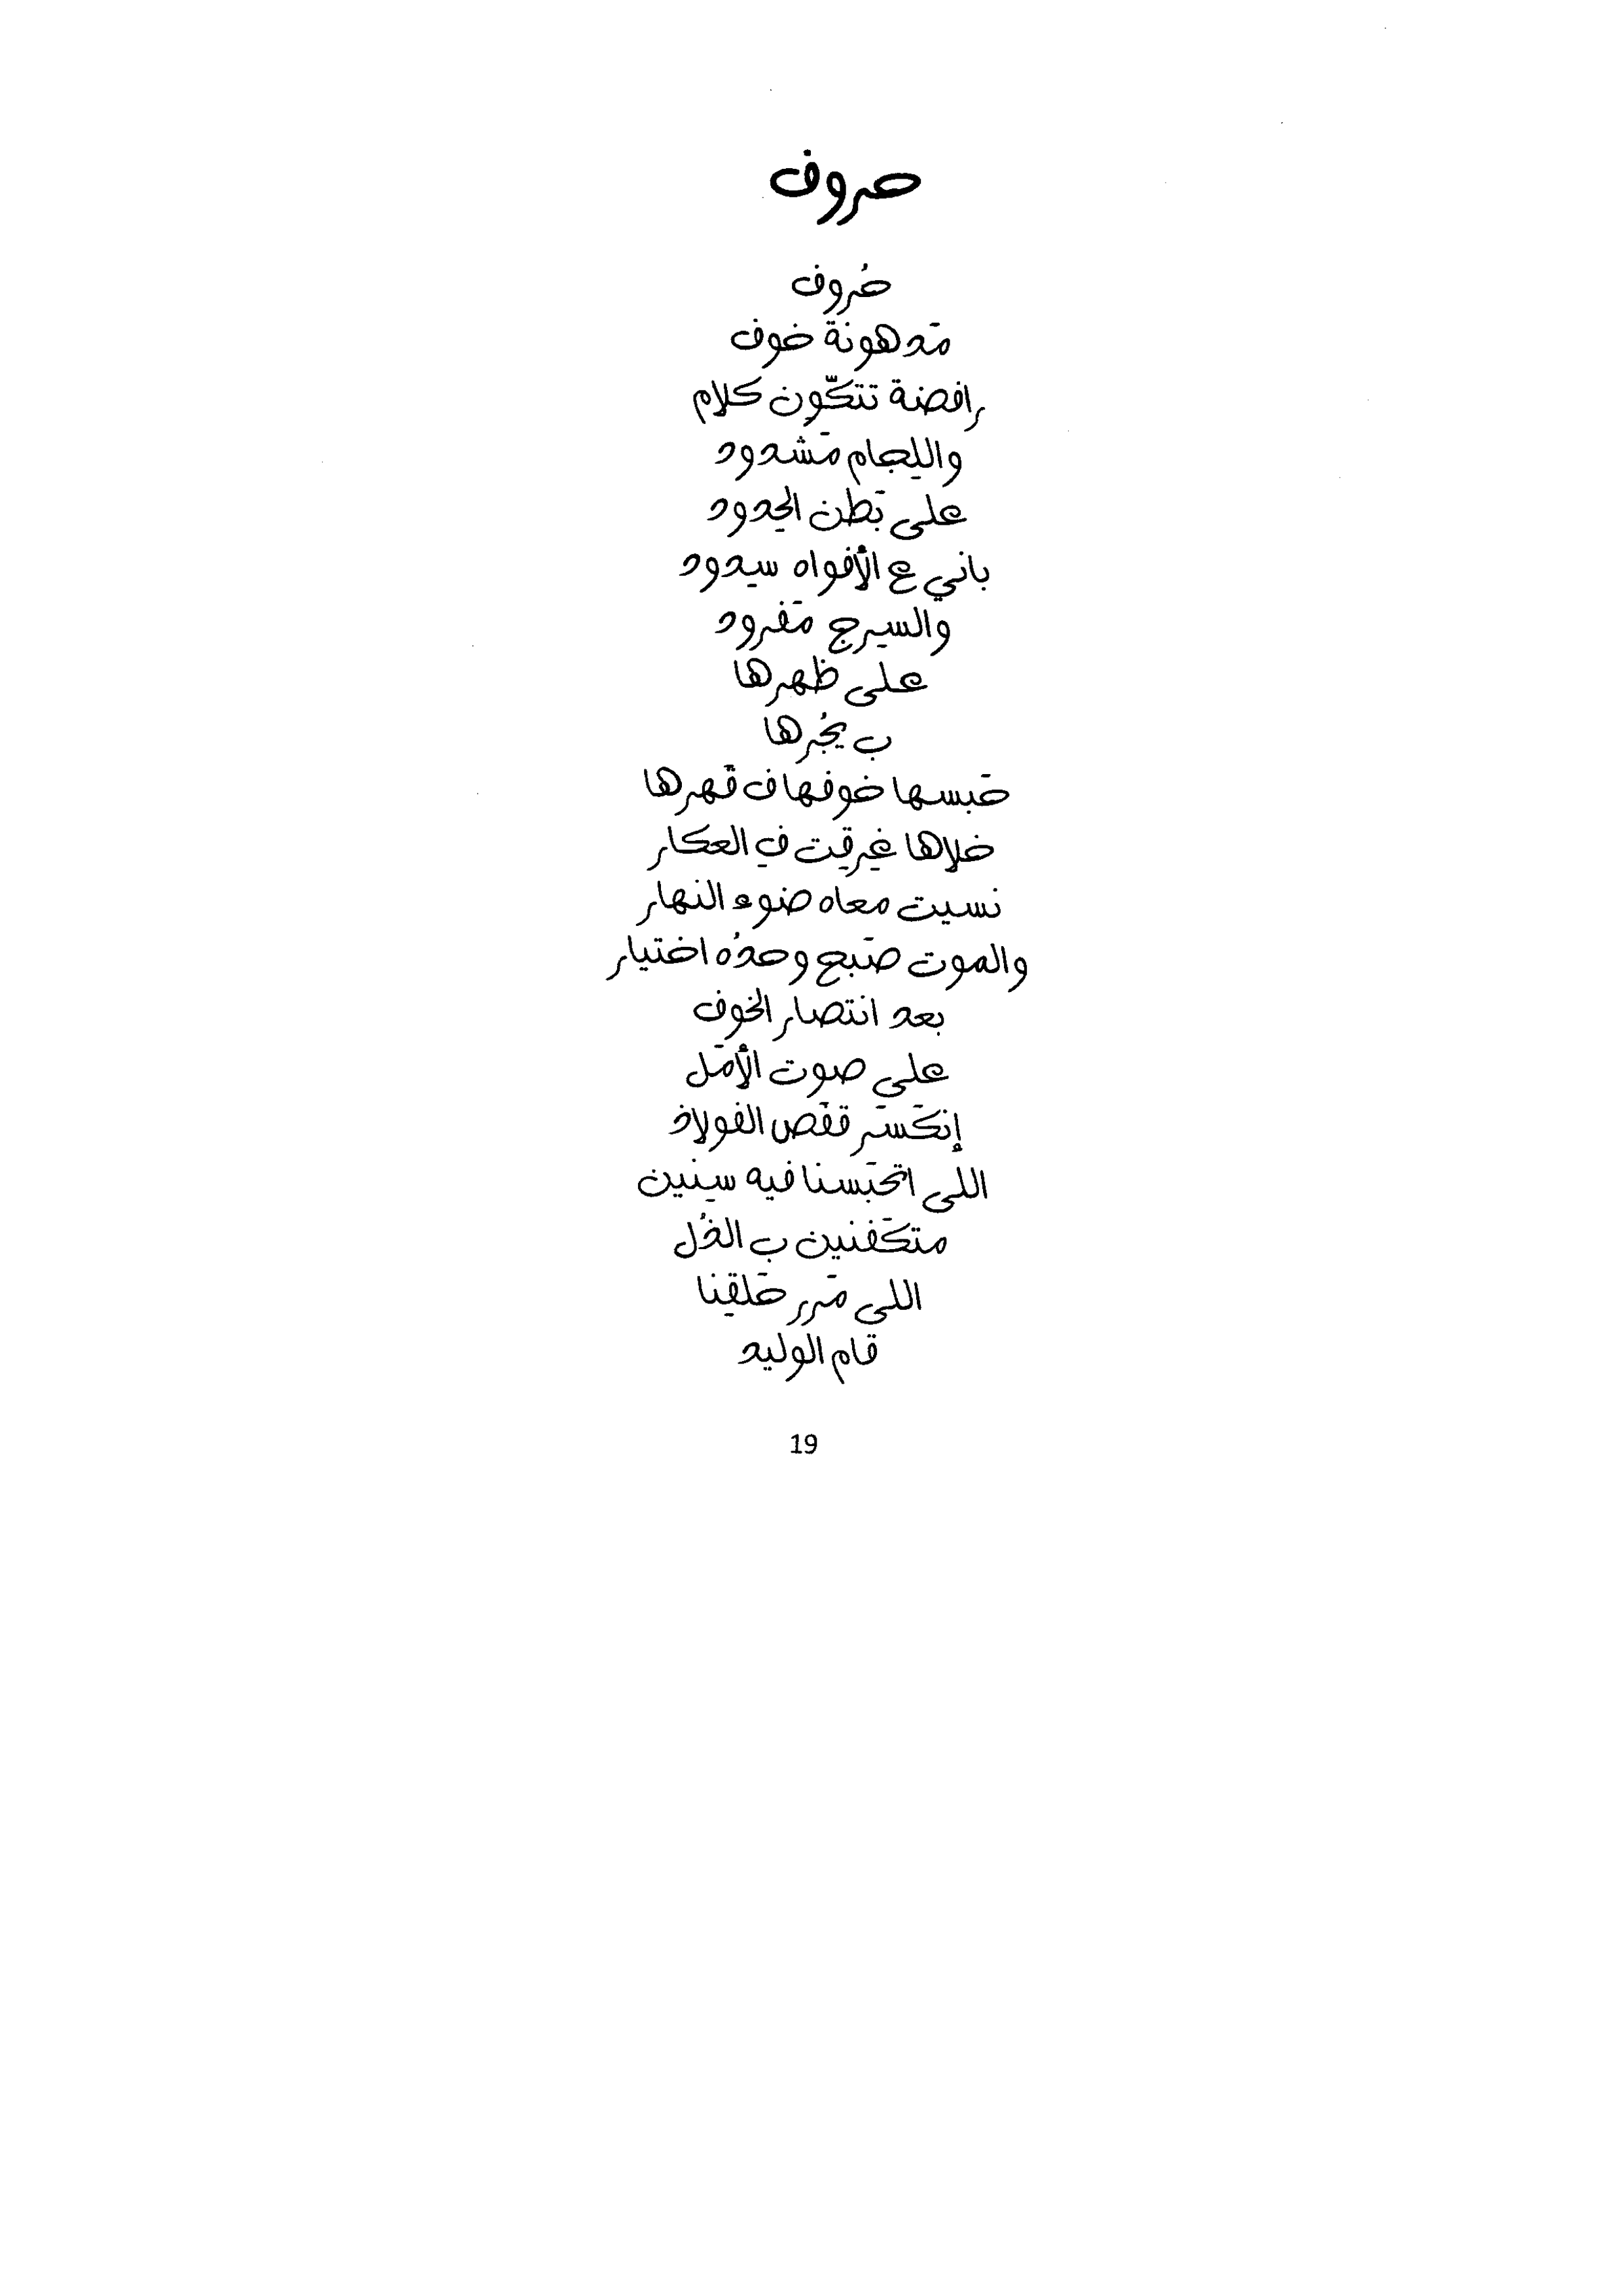 حروف
حُروف
مَدهونة خوف
رافضة تتكّوِن كلام
واللِجام مَشدود
على بَطن الحِدود
باني ع الأفواه سِدود
والسِرج مَفرود
على ظهرها
ب يجُرها
حَبسها خوفها ف قَهرها
خلاها غِرقِت فِ العكار
نسيت معاه ضوء النهار
والموت صَبح وحدُه اختيار
بعد انتصار الخوف
على صوت الأمَل
إنكَسَر قفَص الفولاذ
اللى اتحَبَسنا فيه سِنين
متكَفنين بِ الذُل
اللى مَرر حَلقِنا
قام الوليد
19